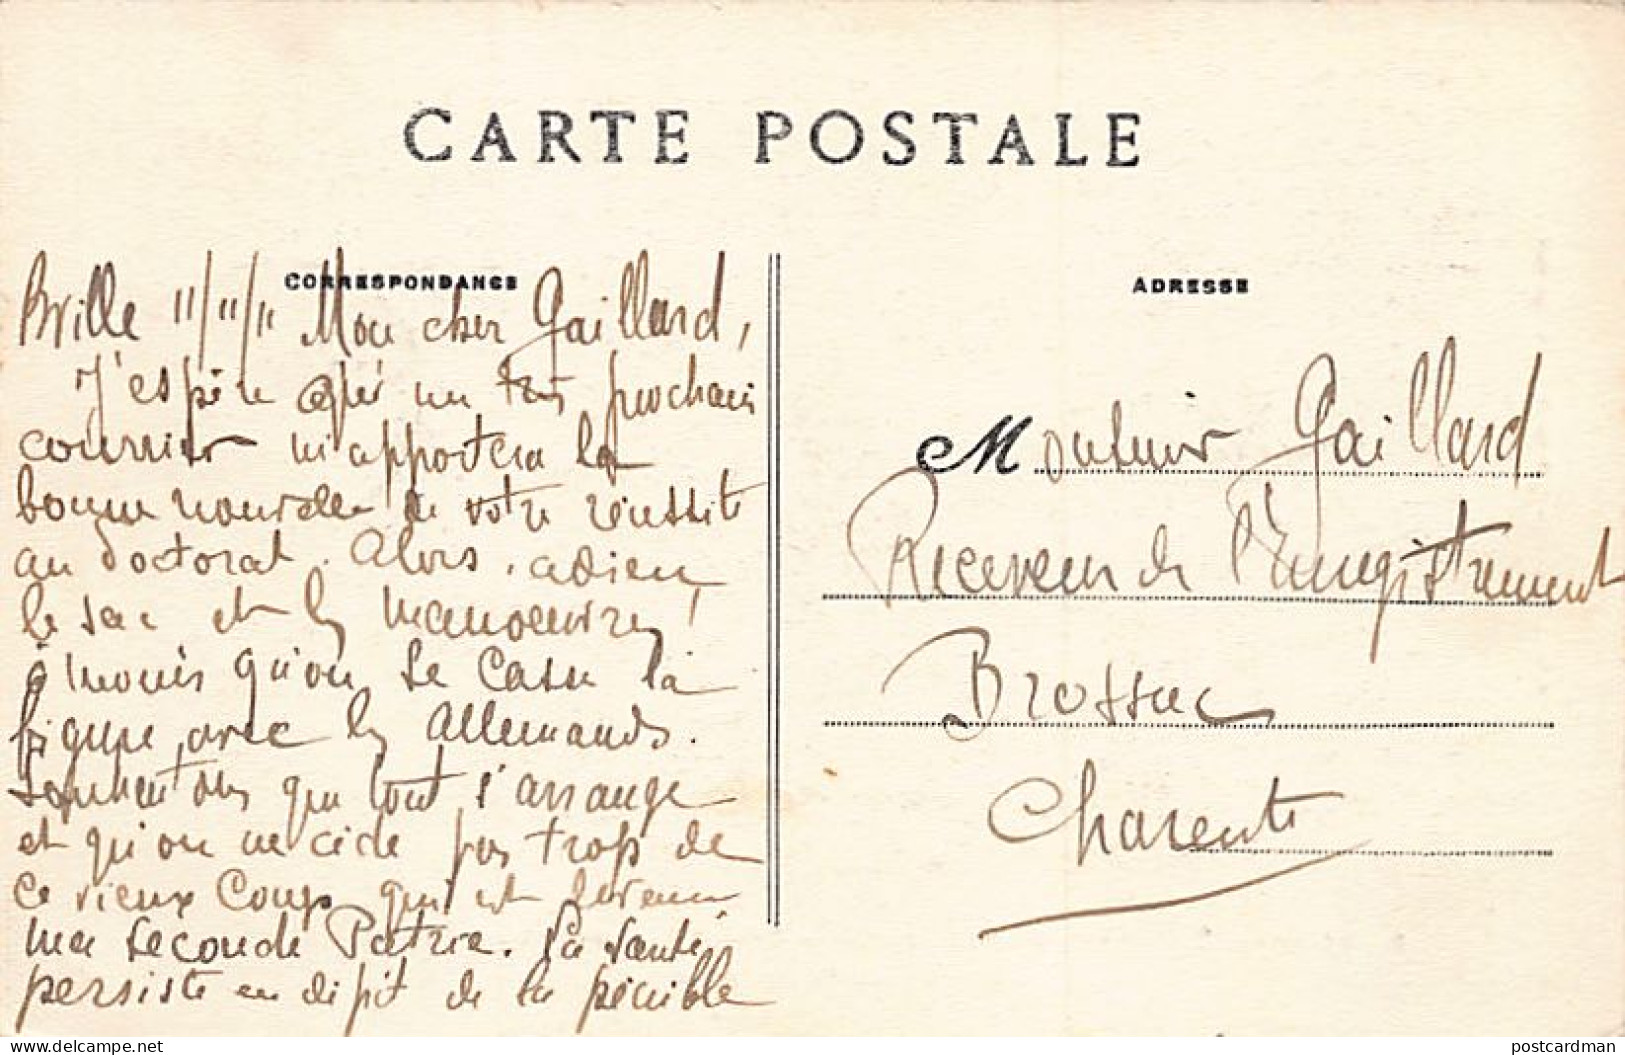 CARTE POSTALE
CORRESPONDANCE
Bville 11/11/11 Mon cher Gaillard,
J'espère qu'un très prochain
courrier m'apportera la
bonne nouvelle de votre réussite
au doctorat. Alors, adieu
le sac et les manoeuvres !
à moins qu'on se casse la
figure avec les Allemands.
Souhaitons que tout s'arrange
et qu'on ne cède pas trop de
ce vieux Congo qui est devenu
ma seconde Patrie. La santé
persiste en dépit de la pénible
ADRESSE
Monsieur Gaillard
Receveur de l'Enregistrement
Brossac
Charente
delcampe.net
postcardman